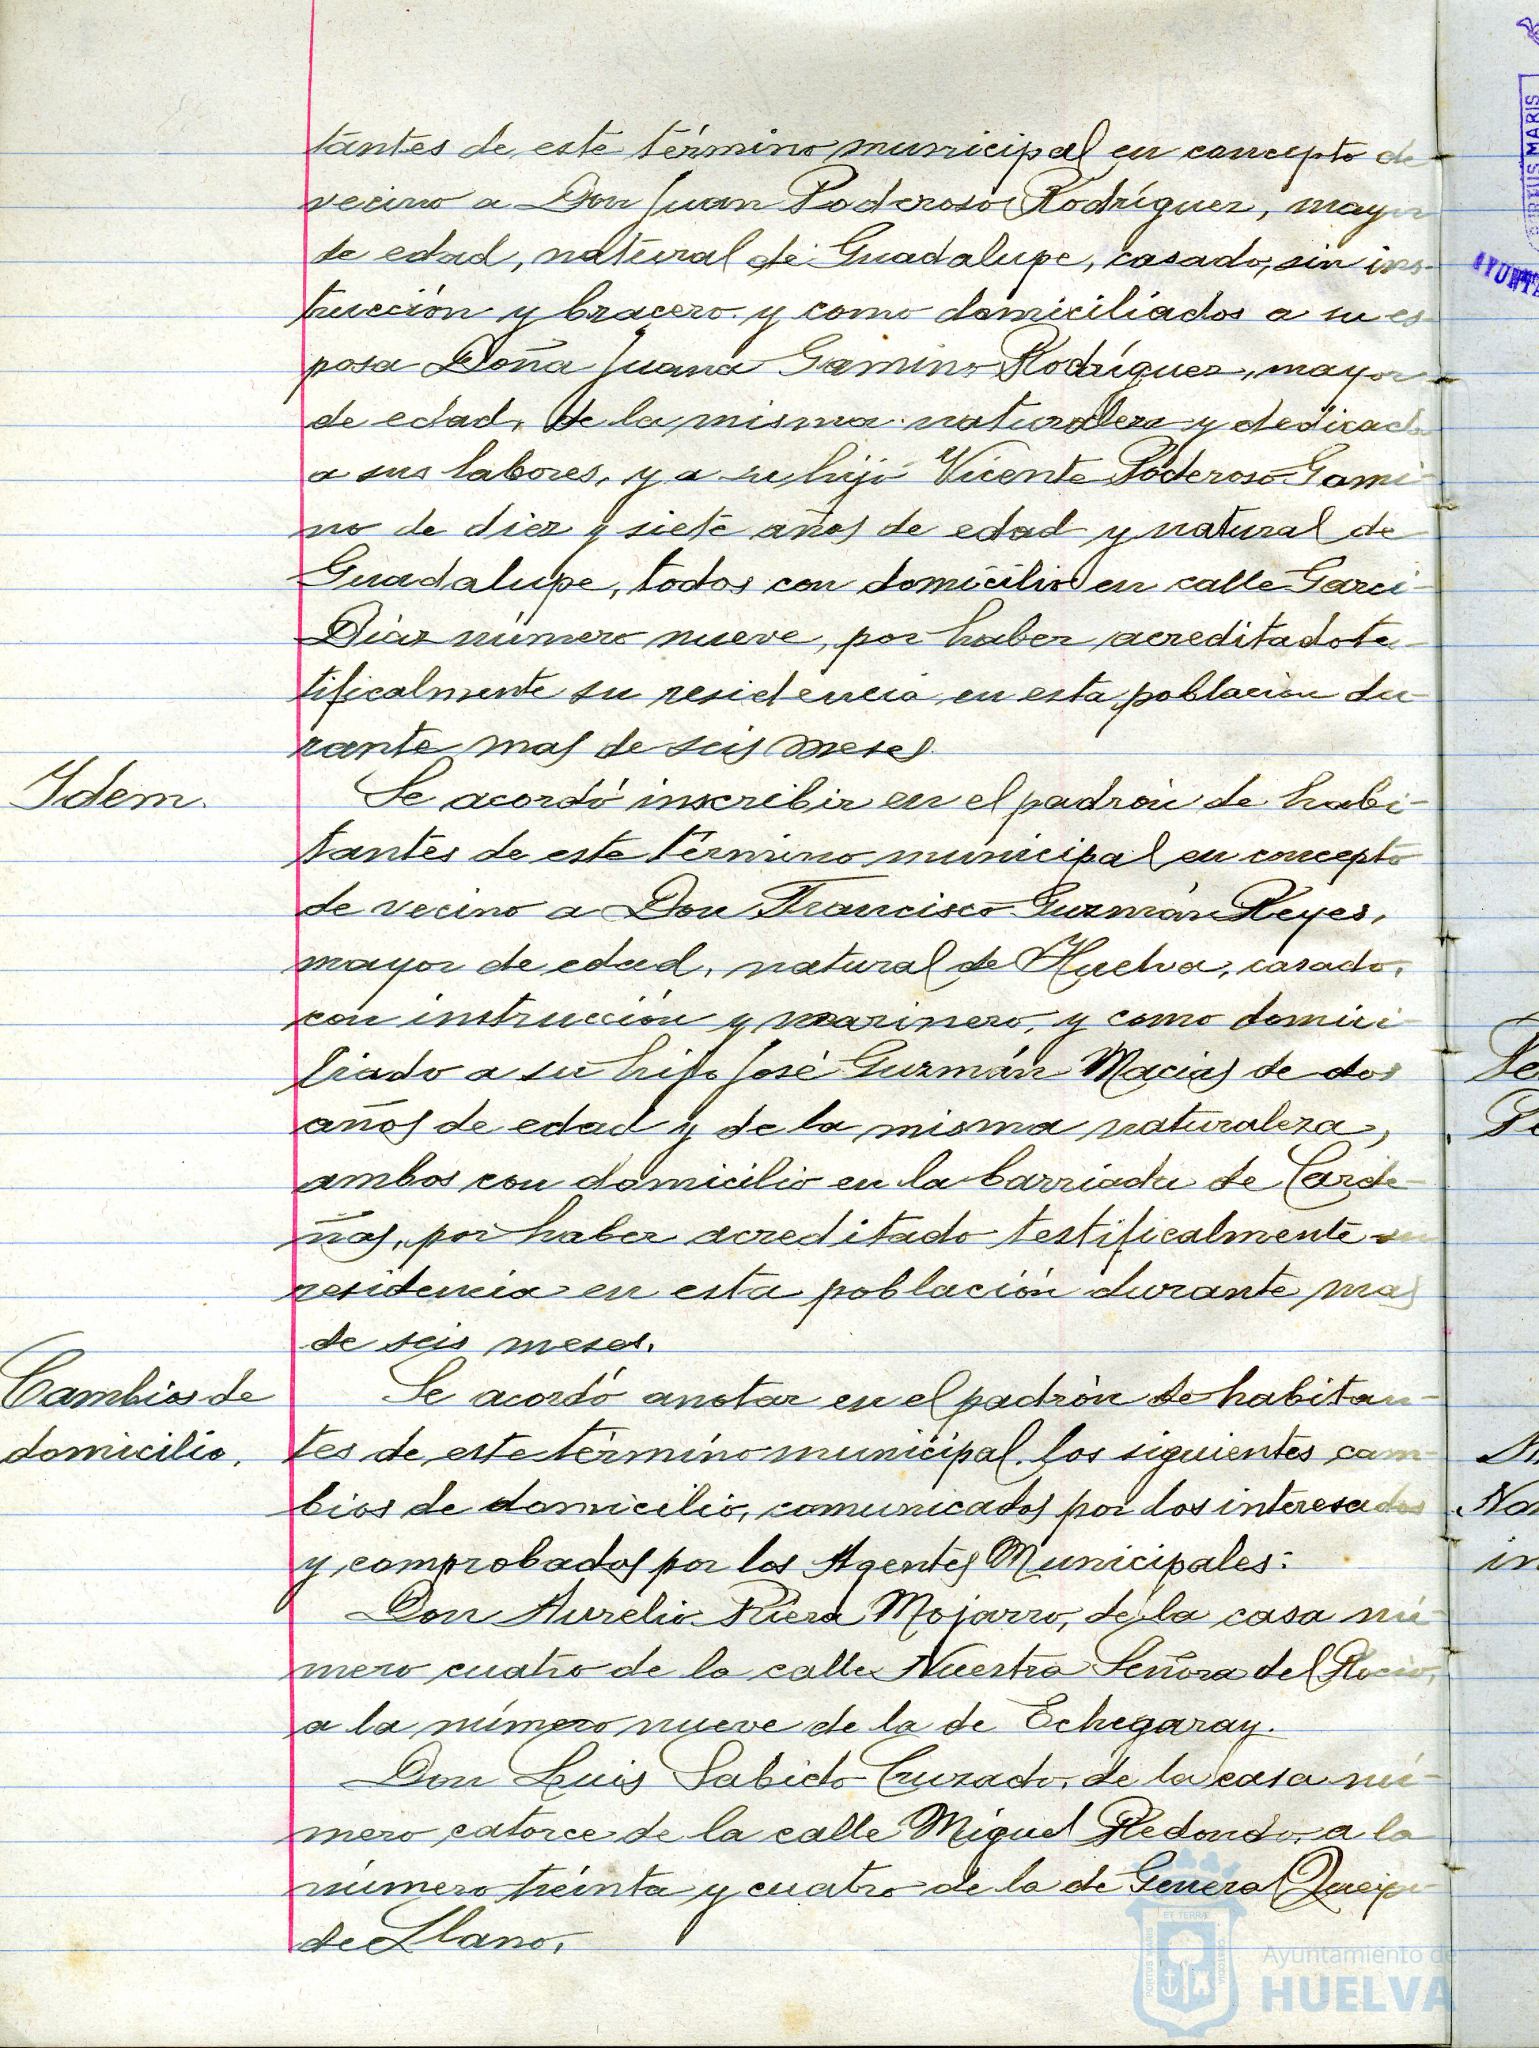 tantes de este término municipal en concepto de
vecino a Don Juan Poderoso Rodríguez, mayor
de edad, natural de Guadalupe, casado, sin ins-
trucción y bracero y como domiciliados a su es-
posa Doña Juana Gamino Rodríguez, mayor
de edad, de la misma naturaleza y dedicada
a sus labores, y a su hijo Vicente Poderoso Gami-
no de diez y siete años de edad y natural de
Guadalupe, todos con domicilio en calle Garci-
Diaz número nueve, por haber acreditado te-
tificalmente su residencia en esta poblacion du-
rante mas de seis meses.
Idem.
Se acordó inscribir en el padrón de habi-
tantes de este término municipal en concepto
de vecino a Don Francisco Guzmán Reyes,
mayor de edad, natural de Huelva, casado,
con instrucción y marinero, y como domici-
liado a su hijo José Guzmán Macias de dos
años de edad y de la misma naturaleza,
ambos con domicilio en la barriada de Carde-
ñas, por haber acreditado testificalmente su
residencia en esta población durante mas
de seis meses.
Cambios de
domicilio.
Se acordó anotar en el padrón de habitan-
tes de este término municipal, los siguientes cam-
bios de domicilio, comunicados por los interesados
y comprobados por los Agentes Municipales:
Don Aurelio Riera Mojarro, de la casa nú-
mero cuatro de la calle Nuestra Señora del Rocio,
a la número nueve de la de Echegaray.
Don Luis Sabido Cruzado, de la casa nú-
mero catorce de la calle Miguel Redondo, a la
número treinta y cuatro de la de General Queipo
de Llano.
PORTUS MARIS
ET TERRAE
CUSTODIA
Ayuntamiento de
HUELVA